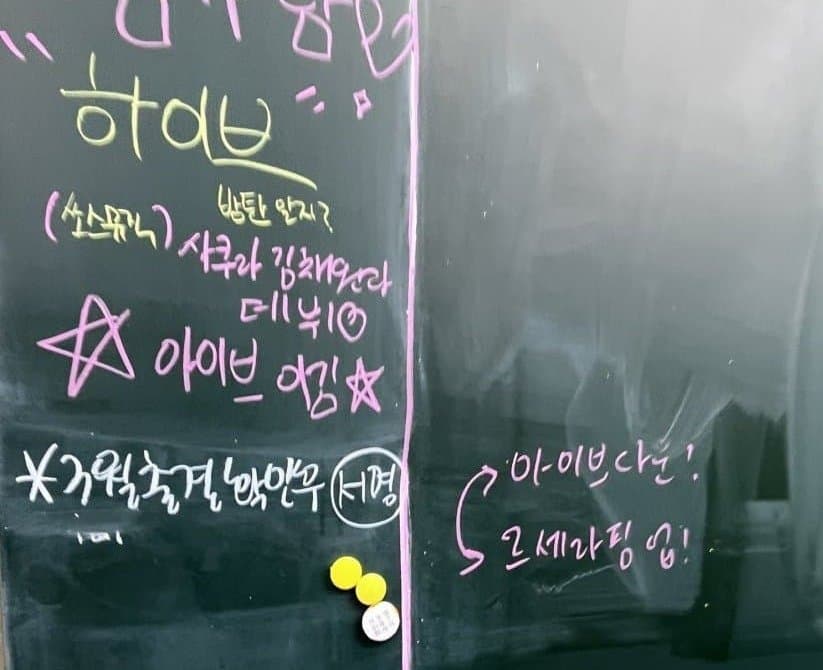 하이브
방탄 알지?
(쏘스뮤직) 사쿠라 김채원
데뷔
☆ 아이브 이김 ☆
*3월 출결 확인 서명
아이브 다운!
르세라핌 업!